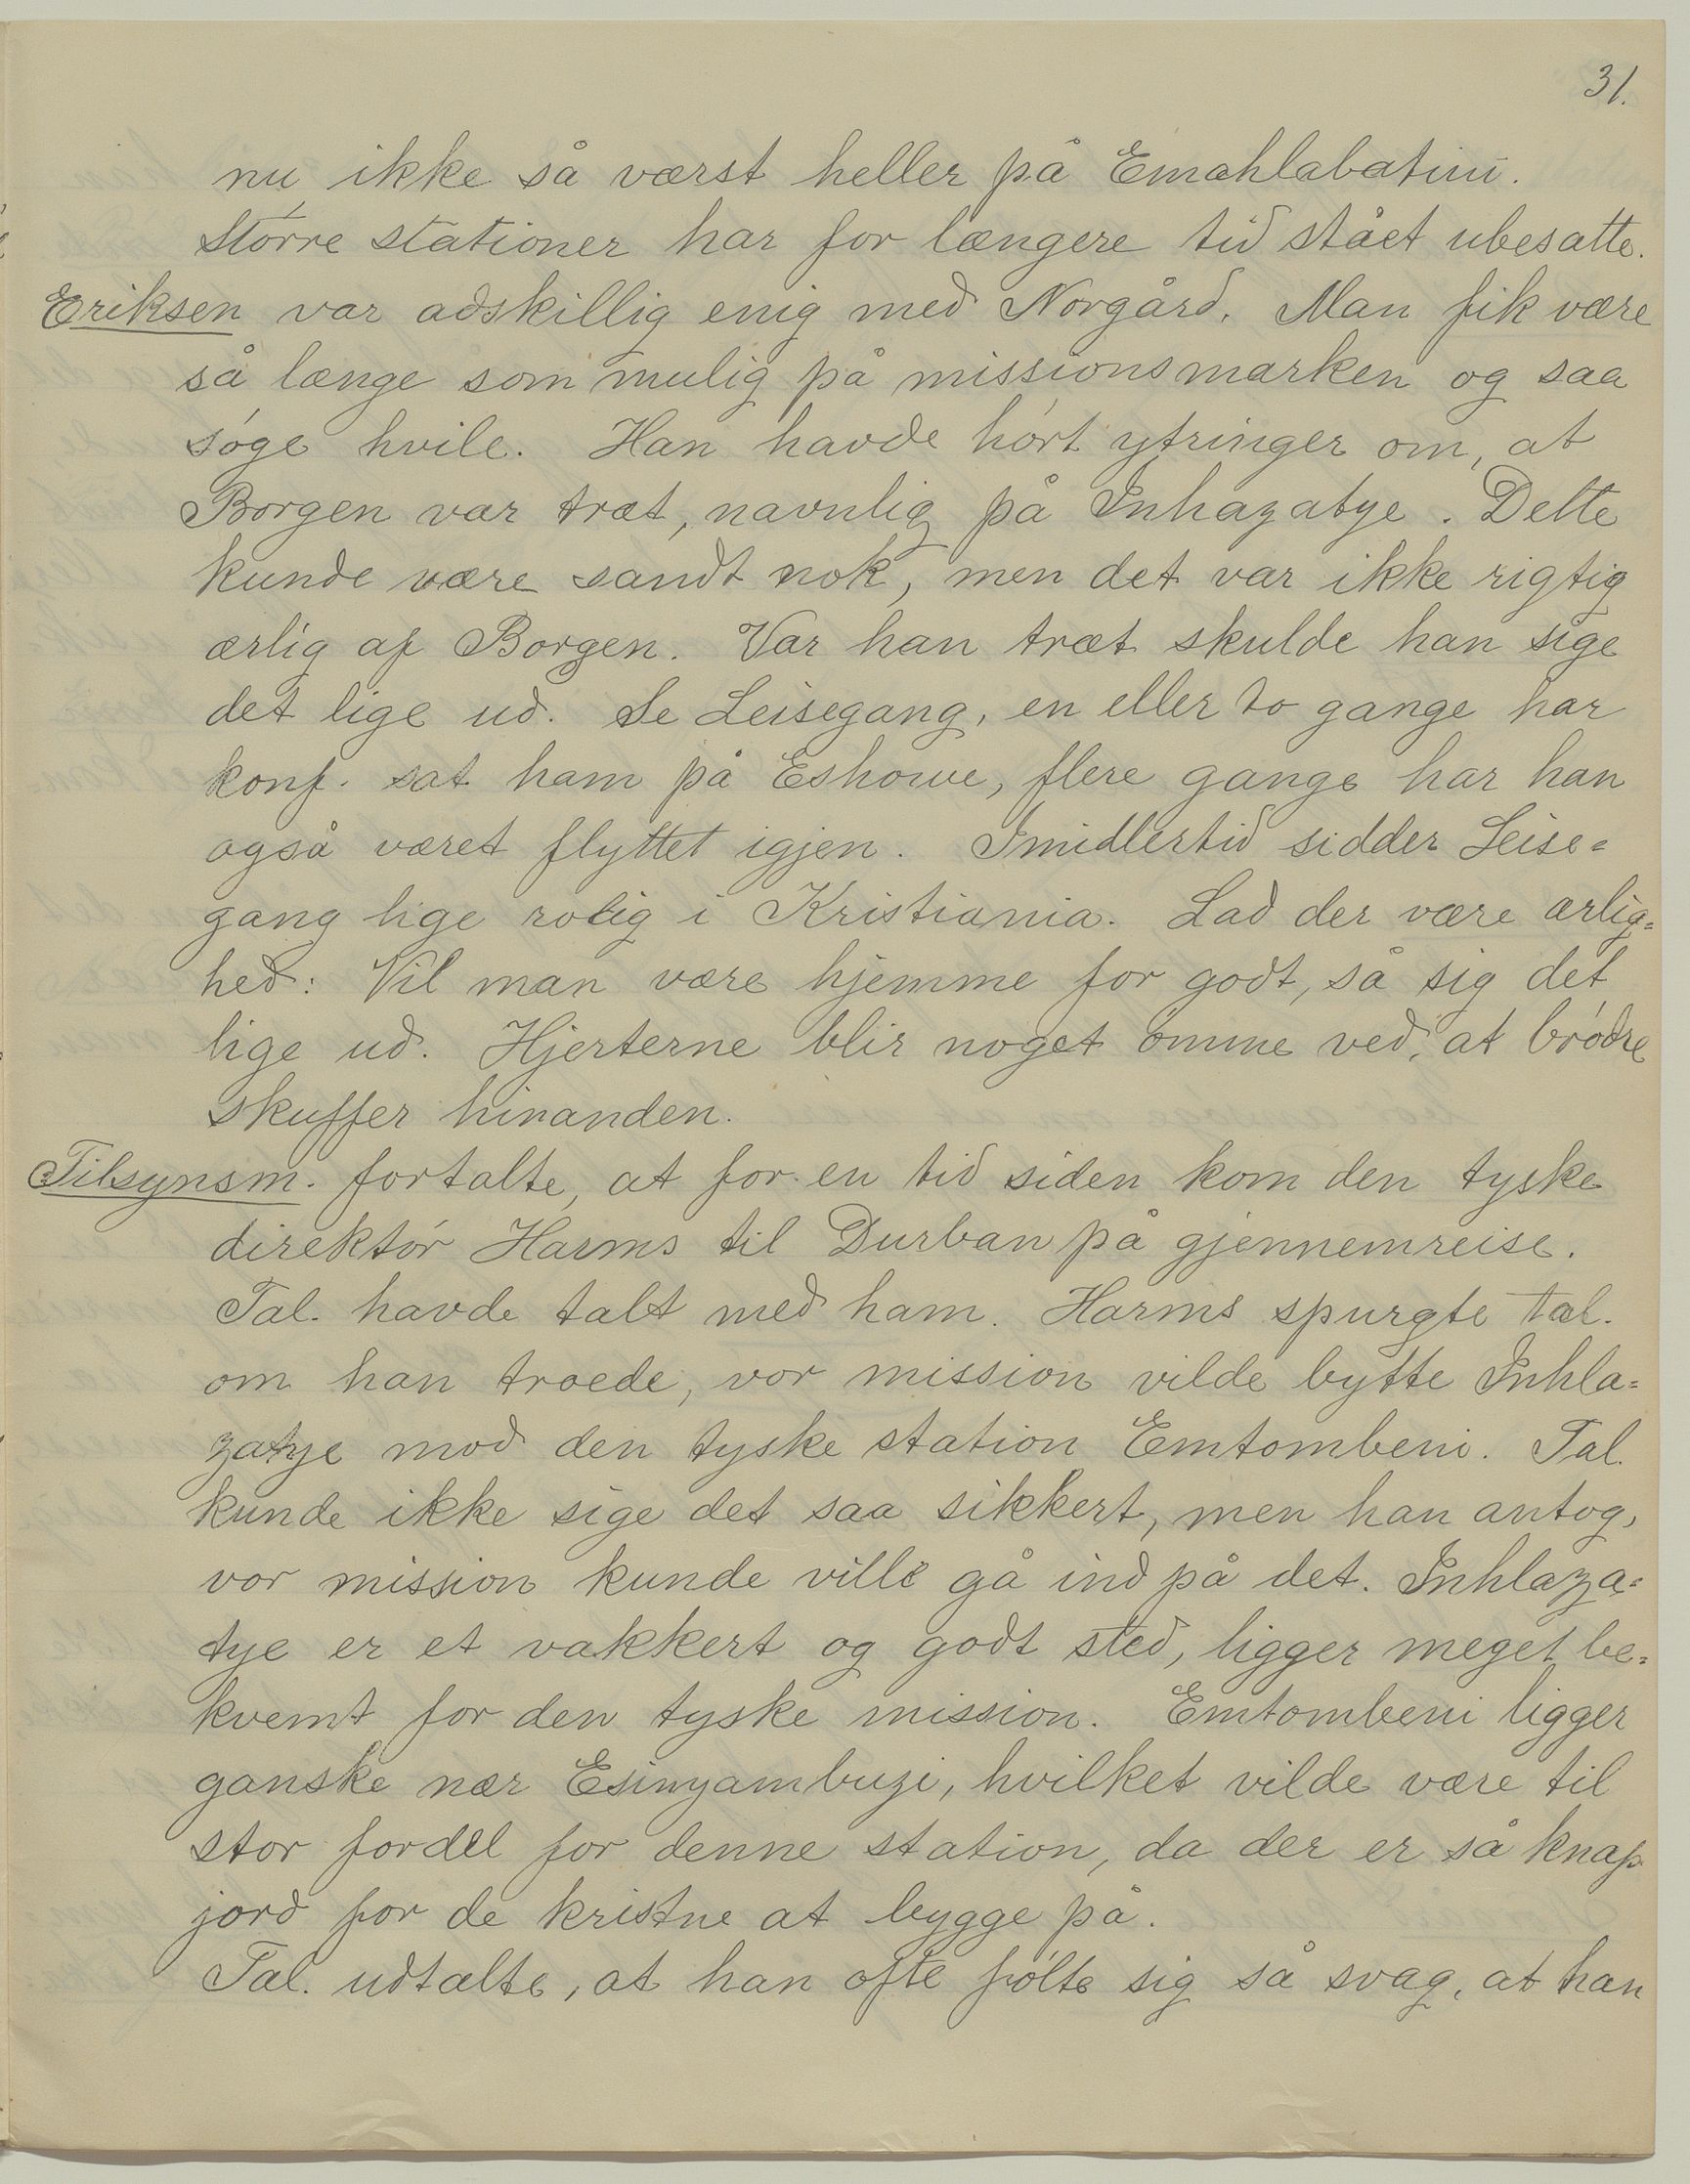 31.
nu ikke så værst heller på Emahlabatini.
Större stationer har for længere tid stået ubesatte.
Eriksen var adskillig enig med Norgård. Man fik være
så længe som mulig på missionsmarken og saa
söge hvile. Han havde hört ytringer om, at
Borgen var træt, navnlig på Inhazatye. Dette
kunde være sandt nok, men det var ikke rigtig
ærlig af Borgen. Var han træt skulde han sige
det lige ud. Se Leisegang, en eller to gange har
konf. sat ham på Eshowe, flere gange har han
også været flyttet igjen. Imidlertid sidder Leise=
gang lige rolig i Kristiania. Lad der være ærlig=
hed: Vil man være hjemme for godt, så sig det
lige ud. Hjerterne blir noget ömme ved, at brödre
skuffer hinanden.
Tilsynsm. fortalte, at for en tid siden kom den tyske
direktör Harms til Durban på gjennemreise.
Tal. havde talt med ham. Harms spurgte tal.
om han troede, vor mission vilde bytte Inhla=
zatye mod den tyske station Emtombeni. Tal.
kunde ikke sige det saa sikkert, men han antog,
vor mission kunde ville gå ind på det. Inhlaza=
tye er et vakkert og godt sted, ligger meget be=
kvemt for den tyske mission. Emtombeni ligger
ganske nær Esinyambuzi, hvilket vilde være til
stor fordel for denne station, da der er så knap
jord for de kristne at bygge på.
Tal. udtalte, at han ofte fölte sig så svag, at han